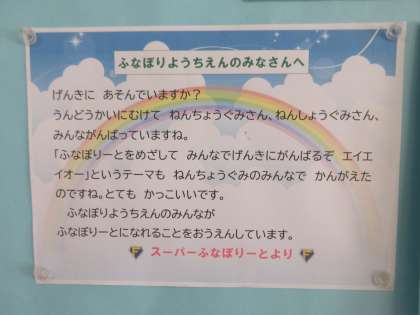 ふなぼりようちえんのみなさんへ
げんきに あそんでいますか？
うんどうかいにむけて ねんちょうぐみさん、ねんしょうぐみさん、
みんながんばっていますね。
「ふなぼりーとをめざして みんなでげんきにがんばるぞ エイエ
イオー」というテーマも ねんちょうぐみのみんなで かんがえた
のですね。とても かっこいいです。
ふなぼりようちえんのみんなが
ふなぼりーとになれることをおうえんしています。
F スーパーふなぼりーとより F